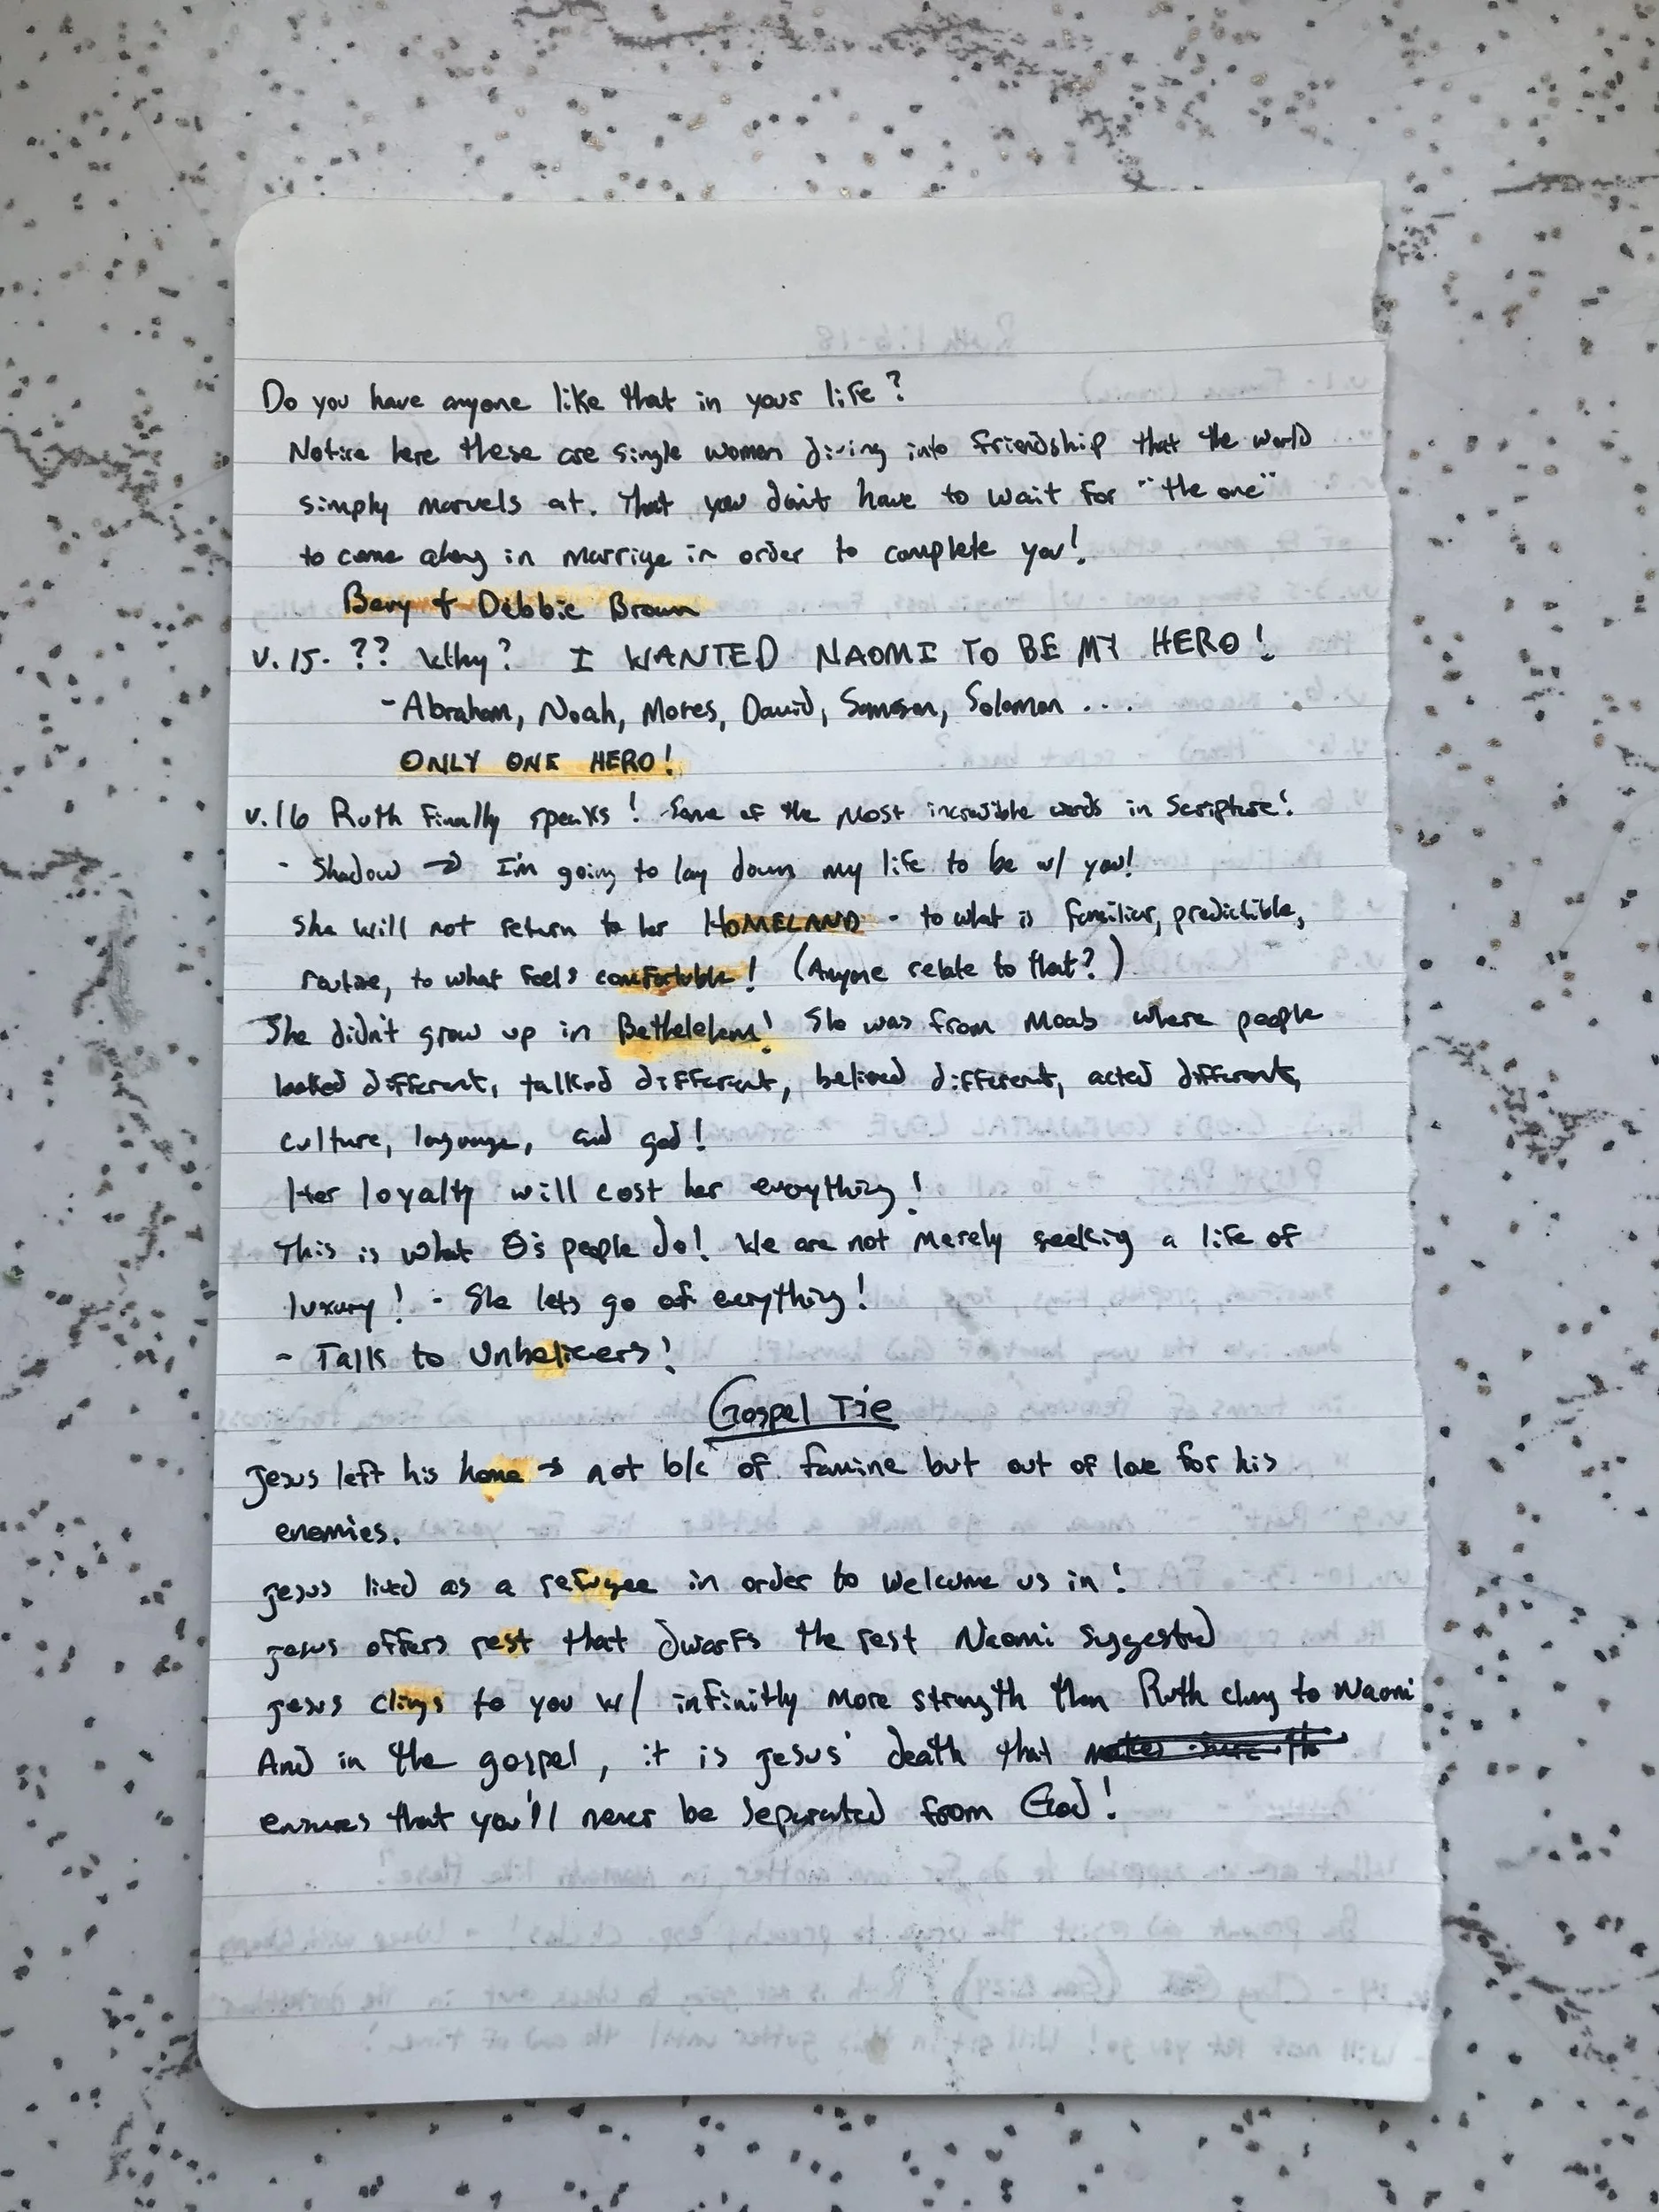 Do you have anyone like that in your life?
Notice here these are single women diving into friendship that the world
simply marvels at. That you don't have to wait for "the one"
to come along in marriage in order to complete you!
Bevy & Debbie Brown
v.15. ?? Why? I WANTED NAOMI TO BE MY HERO!
- Abraham, Noah, Moses, David, Samson, Solomon ...
ONLY ONE HERO!
v.16 Ruth Finally speaks! Some of the most incredible words in Scripture!
- Shadow → I'm going to lay down my life to be w/ you!
She will not return to her HOMELAND - to what is familiar, predictible,
routine, to what feels comfortable! (Anyone relate to that?)
She didn't grow up in Bethelehem! She was from Moab where people
looked different, talked different, believed different, acted different,
culture, language, and god!
Her loyalty will cost her everything!
This is what Θ's people do! We are not merely seeking a life of
luxury! - She lets go of everything!
- Talk to Unbelievers!
Gospel Tie
Jesus left his home → not b/c of famine but out of love for his
enemies.
Jesus lived as a refugee in order to welcome us in!
Jesus offers rest that dwarfs the rest Naomi suggested
Jesus clings to you w/ infinitly more strength than Ruth clung to Naomi
And in the gospel, it is Jesus' death that
ensures that you'll never be separated from God!